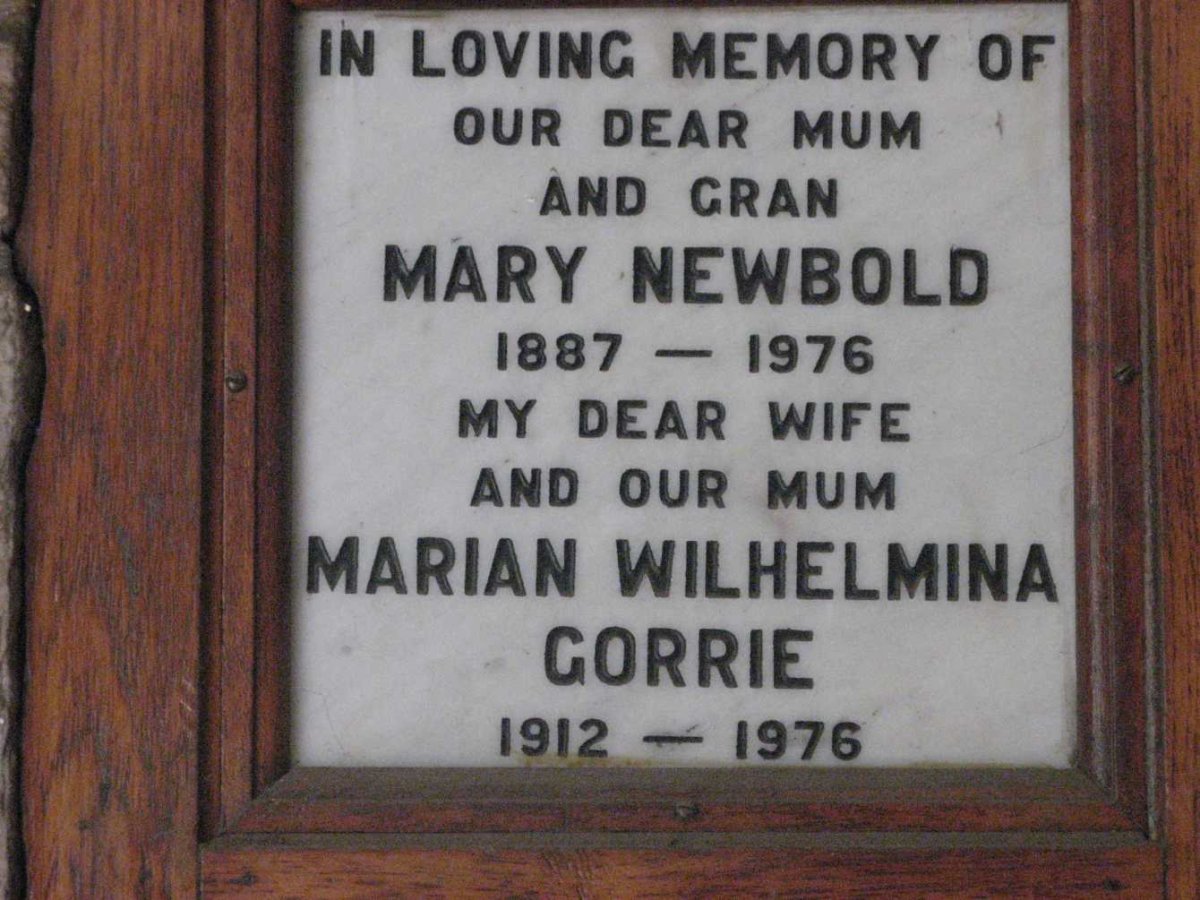 IN LOVING MEMORY OF
OUR DEAR MUM
AND GRAN
MARY NEWBOLD
1887 — 1976
MY DEAR WIFE
AND OUR MUM
MARIAN WILHELMINA
GORRIE
1912 — 1976